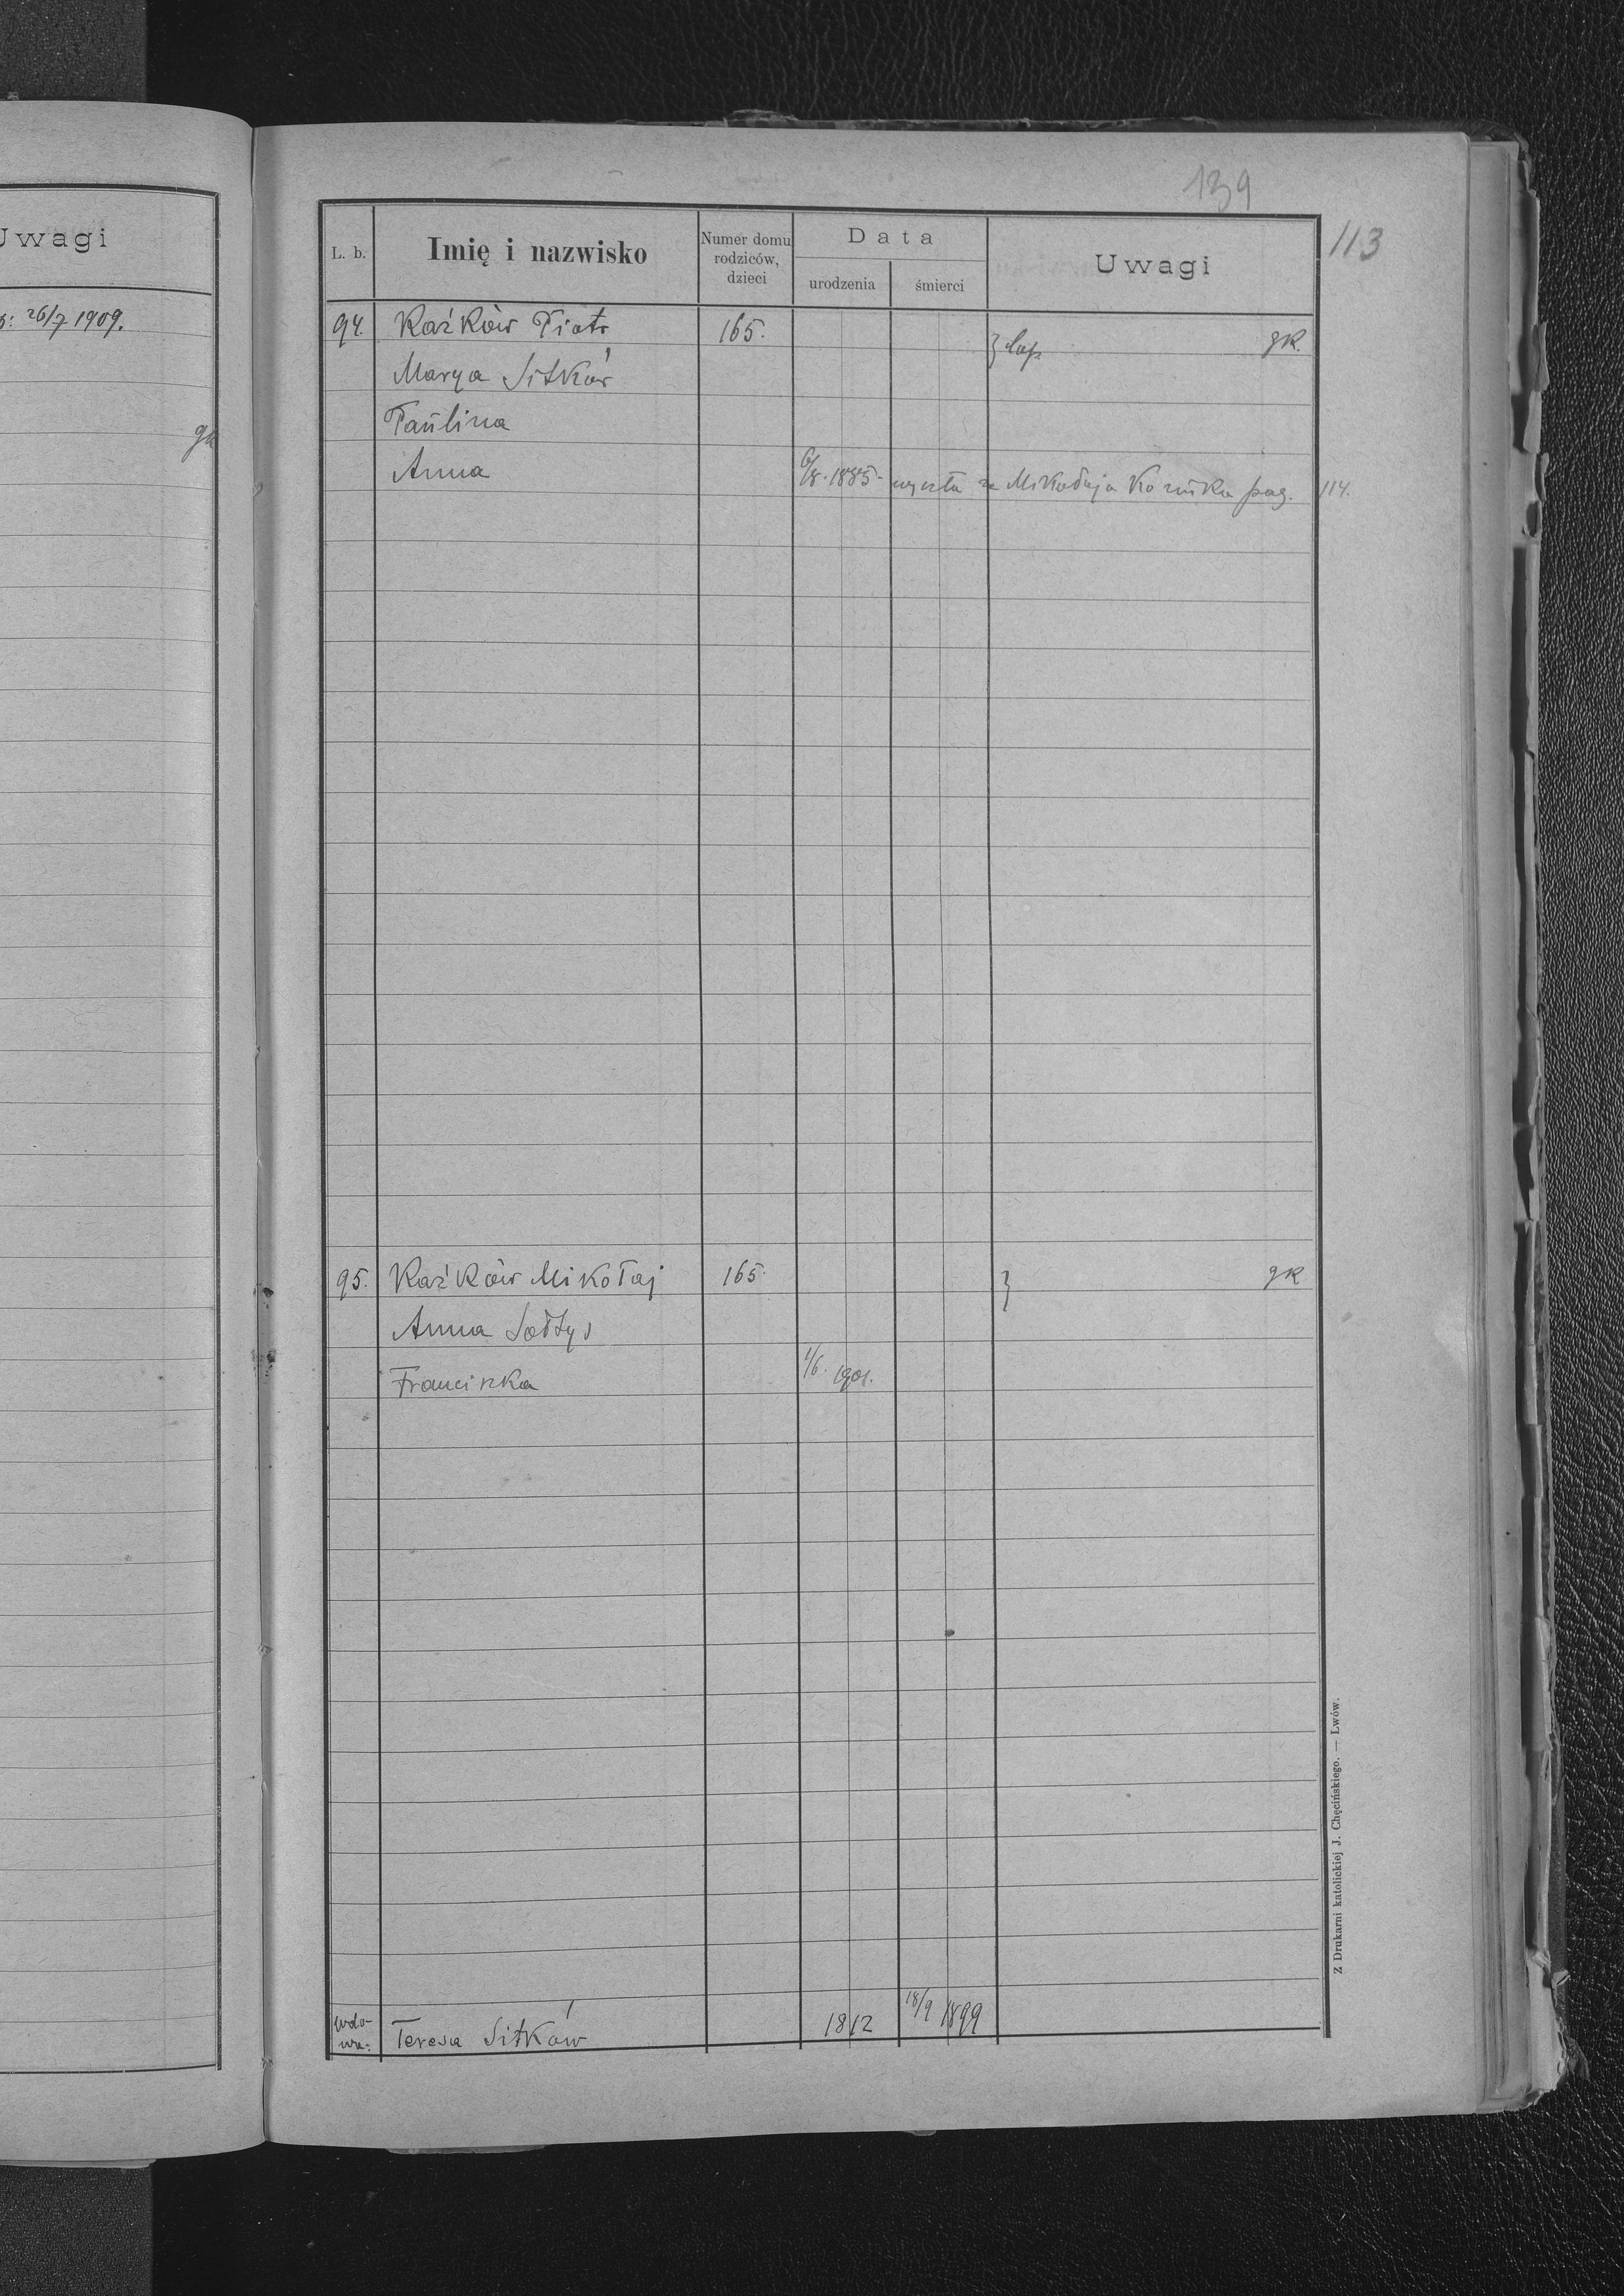 139
113
Uwagi
26/7 1909.
gk
L. b.
Imię i nazwisko
Numer domu rodziców, dzieci
Data
urodzenia
śmierci
Uwagi
94. Kaźków Piotr 165. gk.
Marya Sitków
Paulina
Anna 6/8. 1885. wyszła za Mikołaja Koziuka pag. 114.
95. Kaźków Mikołaj 165. gk
Anna Sołtys
Franciszka 1/6. 1901.
wdowa: Teresa Sitków 1812 18/9 1899
Z Drukarni katolickiej J. Chęcińskiego. — Lwów.